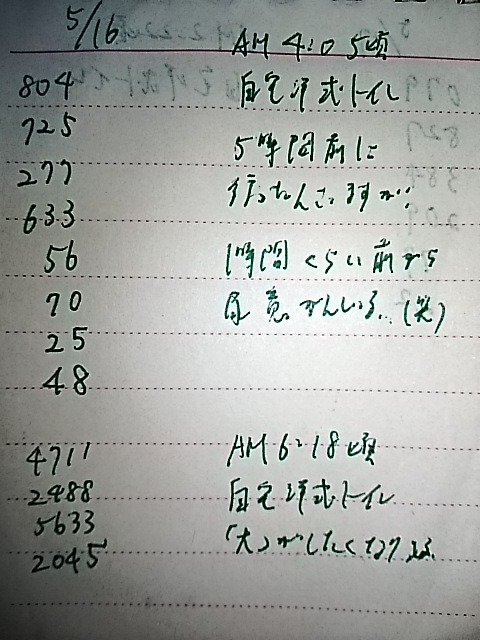 5/16
AM 4:05頃
804 自宅洋式トイレ
725
5時間前に
277
行ったんですが!
633
56 1時間くらい前から
70 尿意がんいる..(笑)
25
48
4711 AM 6:18頃
2488 自宅洋式トイレ
5633
「大」がしたくなり
2045